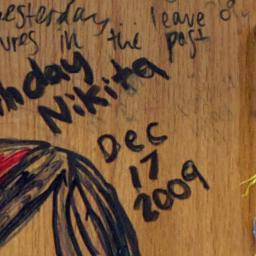 yesterday leave
in the past
day
Nikita
Dec
17
2009